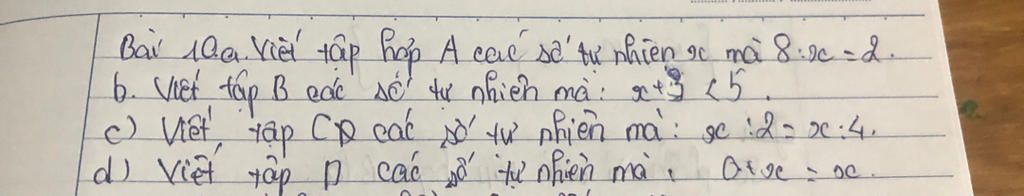 Bài 10.a. Viết tập hợp A các số tự nhiên x mà 8:x=2.
b. Viết tập B các số tự nhiên mà: x+3<5.
c) Viết tập C các số tự nhiên mà: x:2=x:4.
d) Viết tập D các số tự nhiên mà: 0+x=x.